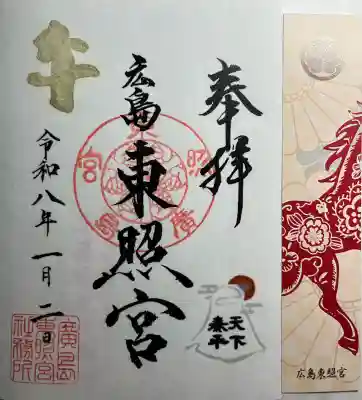 奉拝
広島東照宮
令和八年一月二日
天下
泰平
廣島
東照宮
社務所
広島東照宮